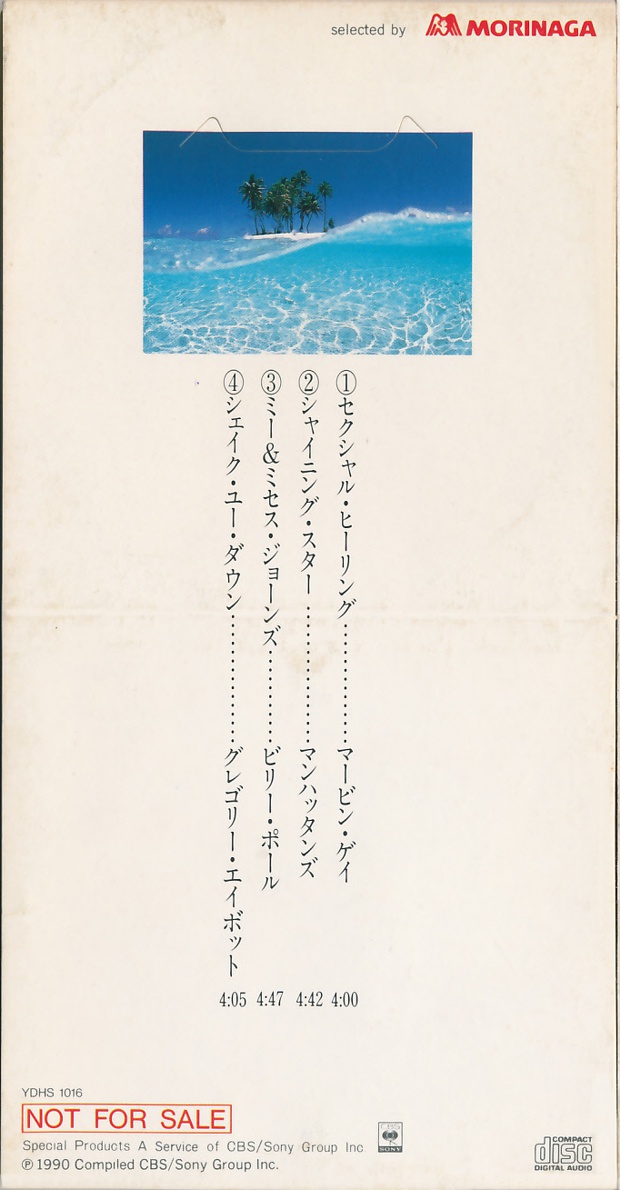 selected by MORINAGA
①セクシャル・ヒーリング……………マービン・ゲイ 4:00
②シャイニング・スター………………マンハッタンズ 4:42
③ミー&ミセス・ジョーンズ…………ビリー・ポール 4:47
④シェイク・ユー・ダウン……………グレゴリー・エイボット 4:05
YDHS 1016
NOT FOR SALE
Special Products A Service of CBS/Sony Group Inc.
℗ 1990 Compiled CBS/Sony Group Inc.
CBS
SONY
COMPACT
disc
DIGITAL AUDIO